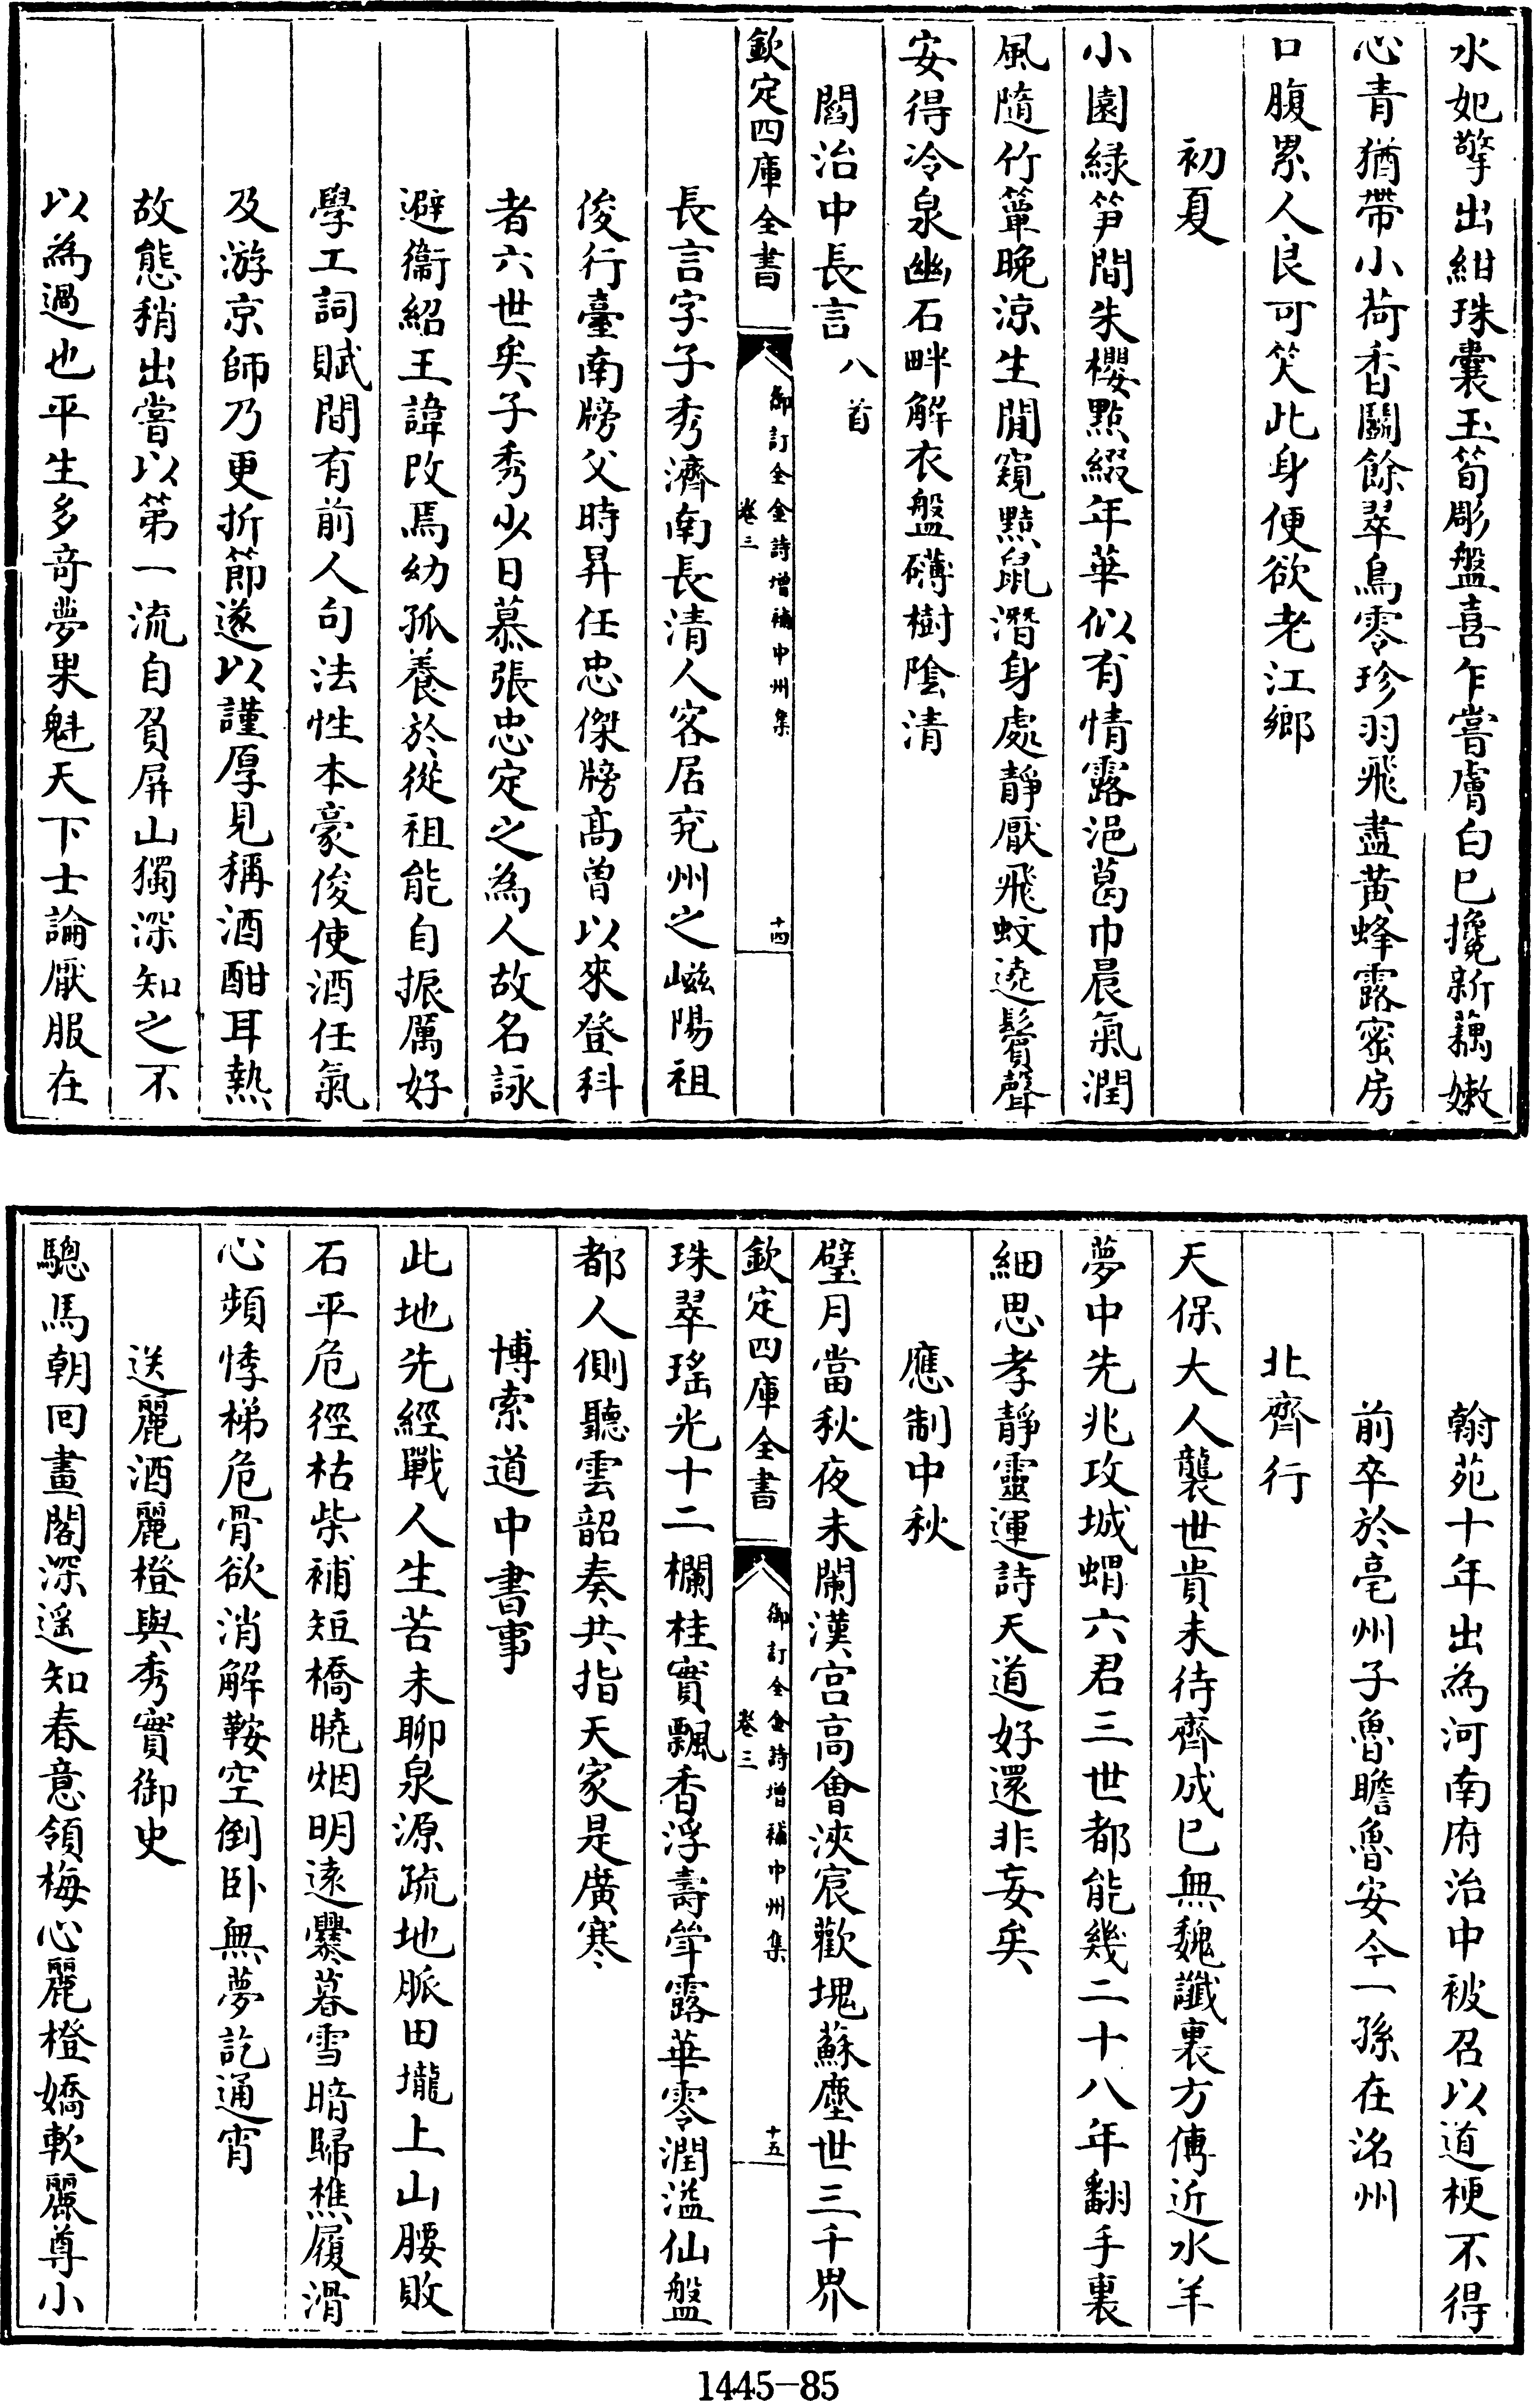 水妃擎出紺珠囊玉筍彫盤喜乍嘗膚白已攙新藕嫩
心青猶帶小荷香鬬餘翠鳥零珍羽飛盡黄蜂露蜜房
口腹累人良可笑此身便欲老江鄉
初夏
小園緑笋間朱櫻點綴年華似有情露浥葛巾晨氣潤
風隨竹簟晚涼生閒窺點鼠潛身處靜厭飛蚊遶鬢聲
安得冷泉幽石畔解衣盤礴樹陰清
閻治中長言八首
欽定四庫全書
御訂全金詩增補中州集
卷三
十四
長言字子秀濟南長清人客居兖州之嵫陽祖
俊行臺南牓父時昇任忠傑牓髙曽以來登科
者六世矣子秀少日慕張忠定之為人故名詠
避衞紹王諱改焉幼孤養於從祖能自振厲好
學工詞賦間有前人句法性本豪俊使酒任氣
及游京師乃更折節遂以謹厚見稱酒酣耳熱
故態稍出嘗以第一流自負屏山獨深知之不
以為過也平生多竒夢果魁天下士論厭服在
翰苑十年出為河南府治中被召以道梗不得
前卒於亳州子魯瞻魯安今一孫在洺州
北齊行
天保大人襲世貴未待齊成已無魏讖裏方傳近水羊
夢中先兆攻城蝟六君三世都能幾二十八年翻手裏
細思孝靜靈運詩天道好還非妄矣
應制中秋
璧月當秋夜未闌漢宫高會浹宸歡塊蘇塵世三千界
欽定四庫全書
御訂全金詩增補中州集
卷三
十五
珠翠瑤光十二欄桂實飄香浮壽斝露華零潤溢仙盤
都人側聽雲韶奏共指天家是廣寒
博索道中書事
此地先經戰人生苦未聊泉源疏地脈田壠上山腰敗
石平危徑枯柴補短橋曉烟明遠爨暮雪暗歸樵履滑
心頻悸梯危骨欲消解鞍空倒卧無夢訖通宵
送麗酒麗橙與秀實御史
驄馬朝回畫閣深遥知春意領梅心麗橙嬌軟麗尊小
1445-85